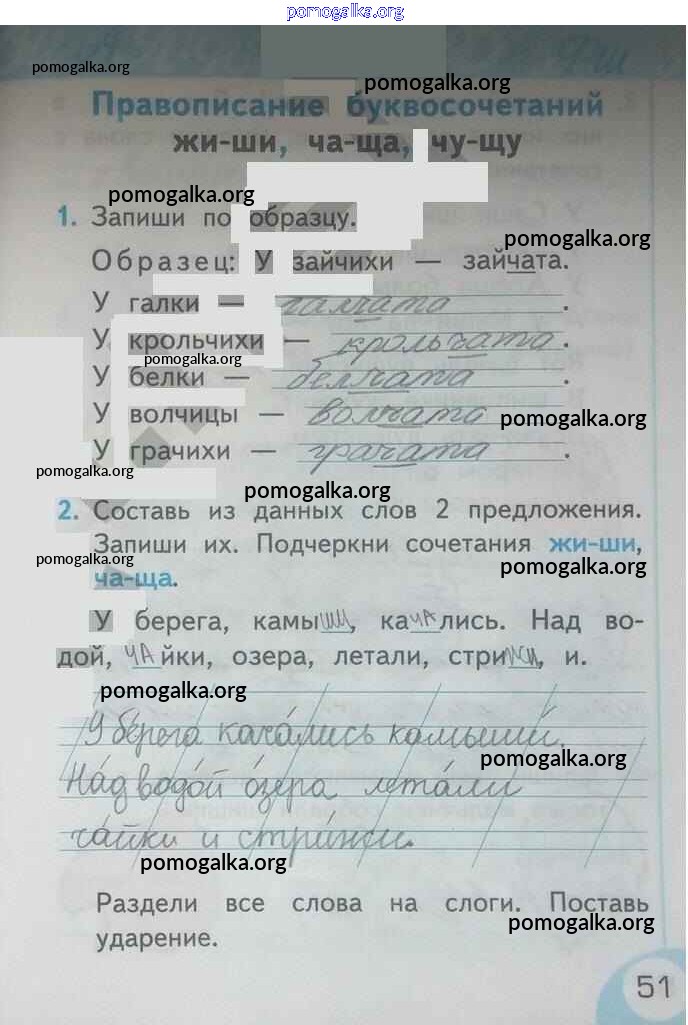 pomogalka.org
pomogalka.org
pomogalka.org
Правописание буквосочетаний
жи-ши, ча-ща, чу-щу
pomogalka.org
1. Запиши по образцу.
pomogalka.org
Образец: У зайчихи — зайчата.
У галки — галчата.
У крольчихи — крольчата.
pomogalka.org
У белки — белчата.
У волчицы — волчата
pomogalka.org
У грачихи — грачата.
pomogalka.org
pomogalka.org
2. Составь из данных слов 2 предложения.
Запиши их. Подчеркни сочетания жи-ши,
pomogalka.org
pomogalka.org
ча-ща.
У берега, камыши, качались. Над во-
дой, чайки, озера, летали, стрижи, и.
pomogalka.org
У берега качались камыши.
pomogalka.org
Над водой озера летали
чайки и стрижи.
pomogalka.org
Раздели все слова на слоги. Поставь
pomogalka.org
ударение.
51